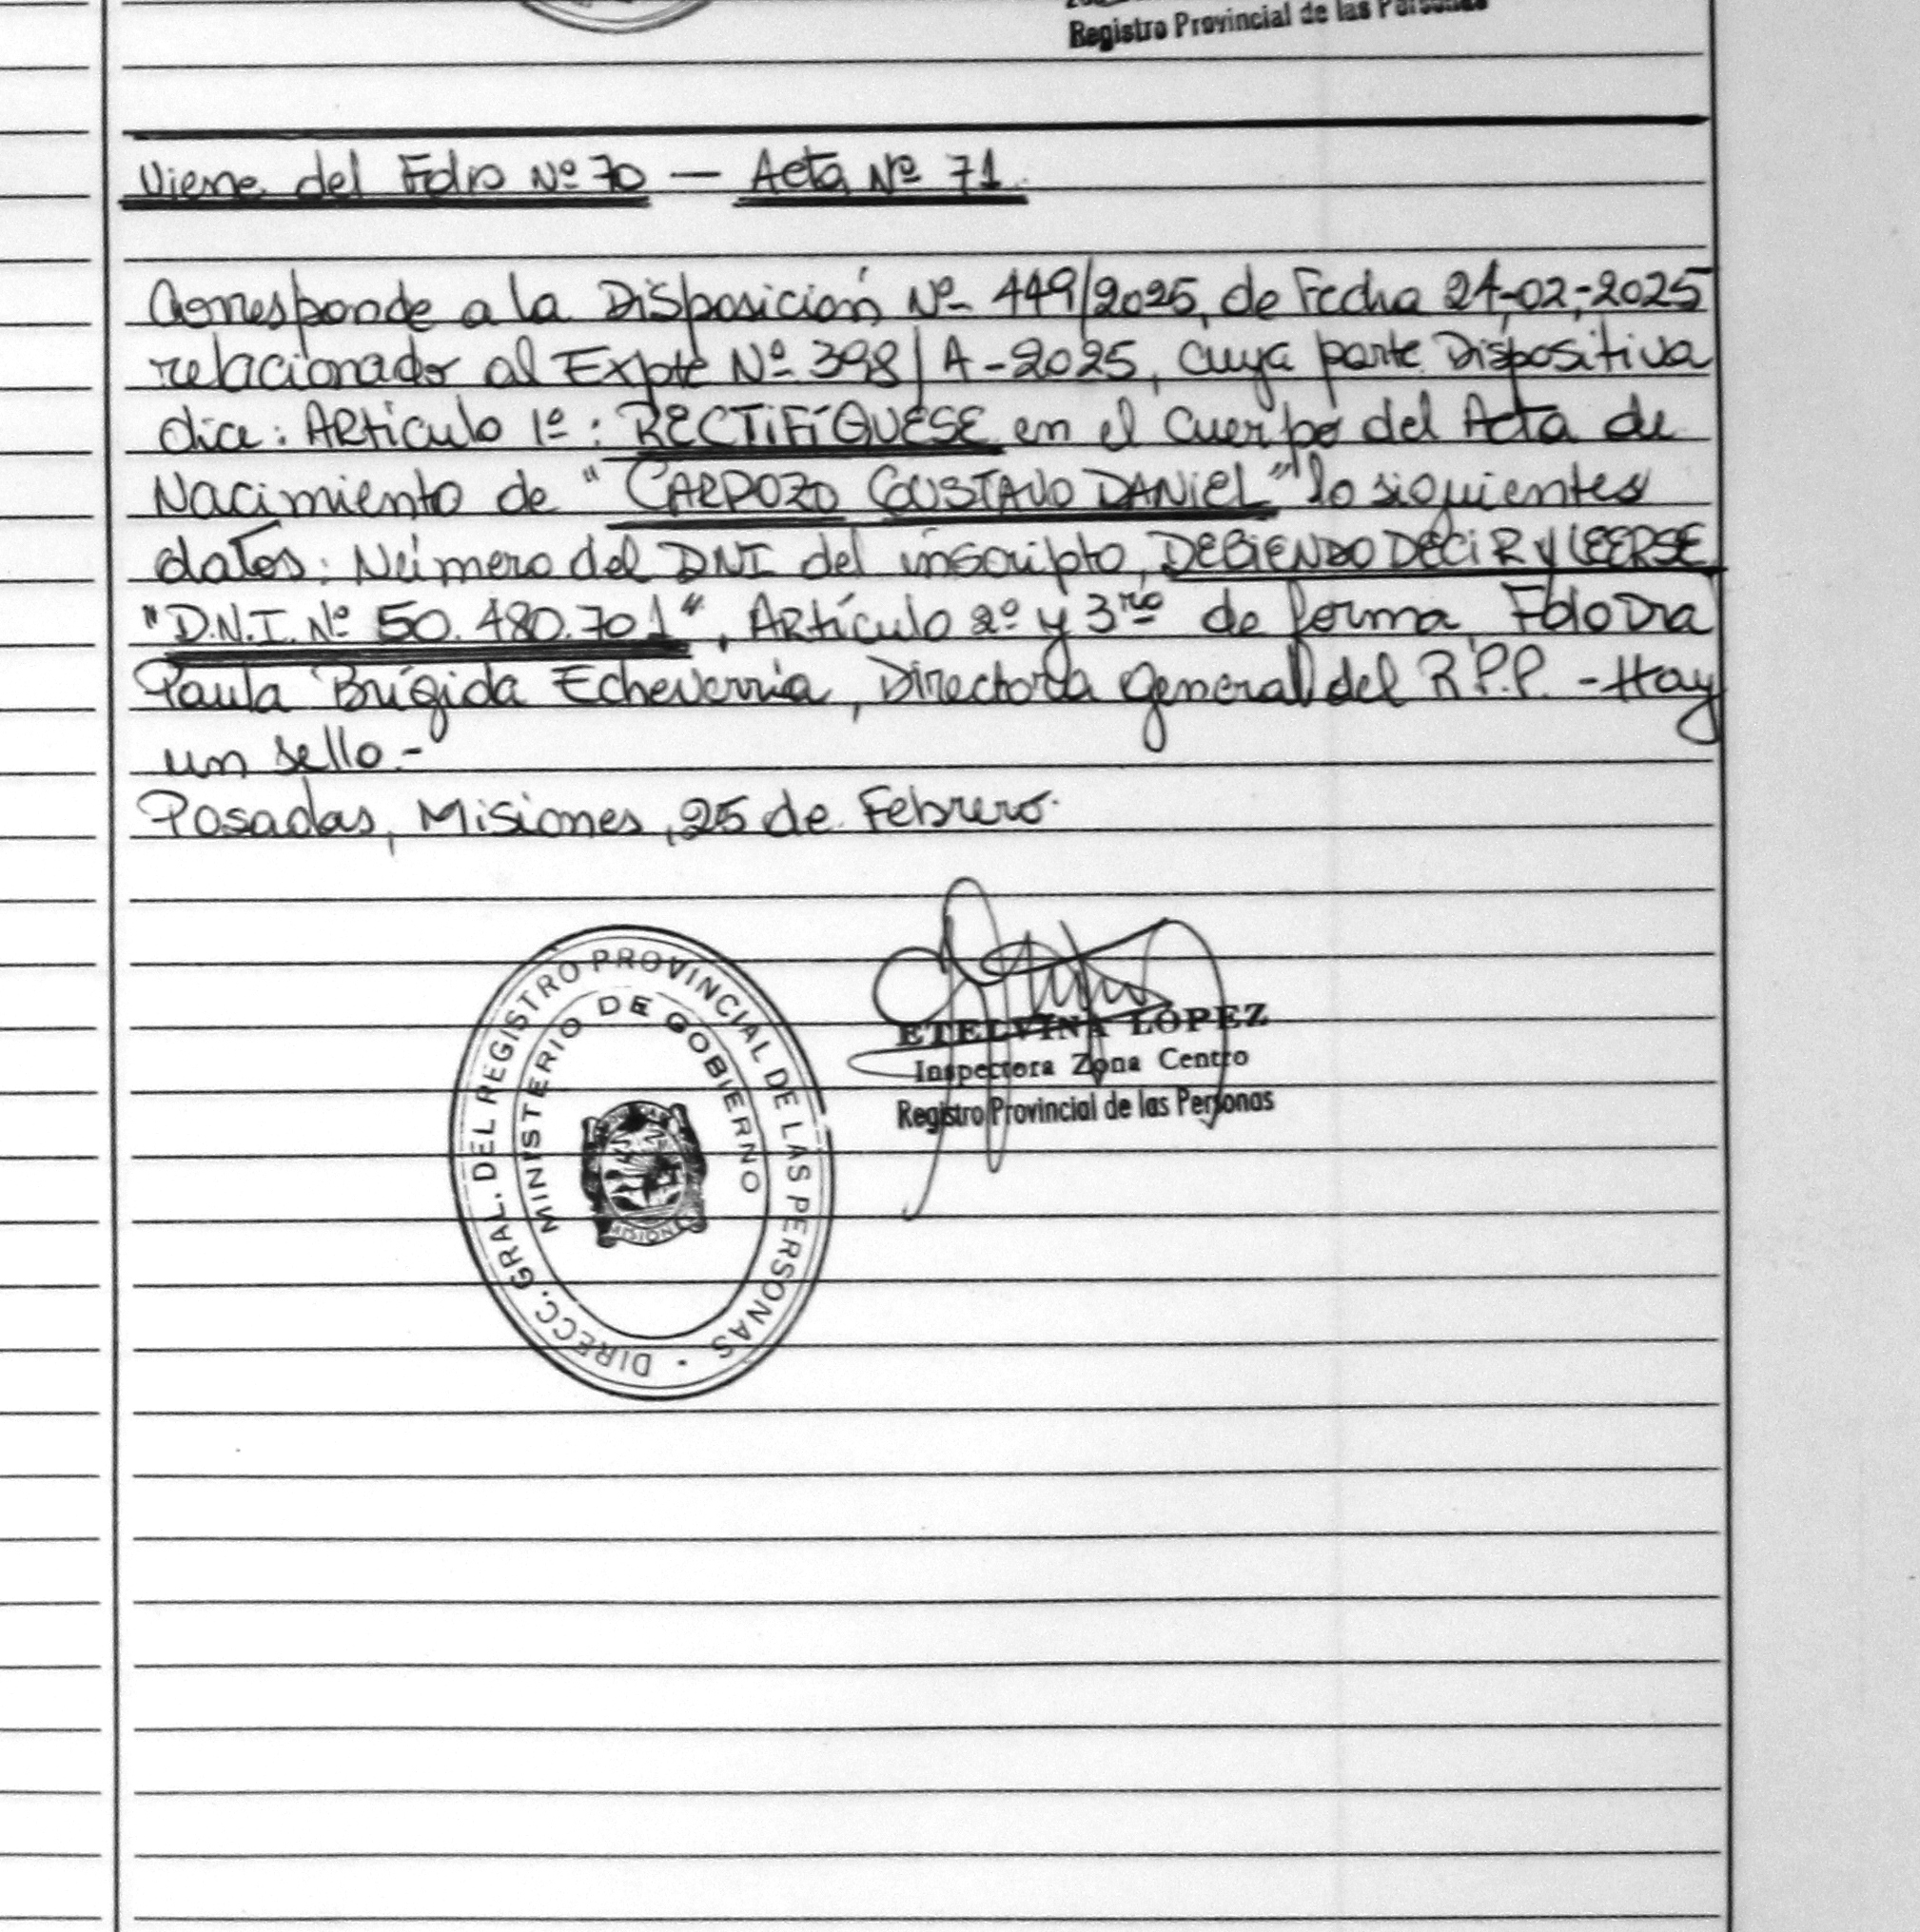 Registro Provincial de las Personas
Viene del Folio Nº 70 — Acta Nº 71
Corresponde a la Disposición Nº 449/2025, de Fecha 24-02-2025
relacionado al Expte Nº 398/A-2025, cuya parte Dispositiva
dice: Artículo 1º: RECTIFÍQUESE en el cuerpo del Acta de
Nacimiento de "CARDOZO GUSTAVO DANIEL" lo siguientes
datos: Número del DNI del inscripto, DEBIENDO DECIR Y LEERSE
"D.N.I. Nº 50.480.701", Artículo 2º y 3ro de forma, Fdo Dra
Paula Brígida Echeverria, Directora General del R.P.P. - Hay
un sello.-
Posadas, Misiones, 25 de Febrero.
DIRECC. GRAL. DEL REGISTRO PROVINCIAL DE LAS PERSONAS
MINISTERIO DE GOBIERNO
MISIONES
ETELVINA LOPEZ
Inspectora Zona Centro
Registro Provincial de las Personas